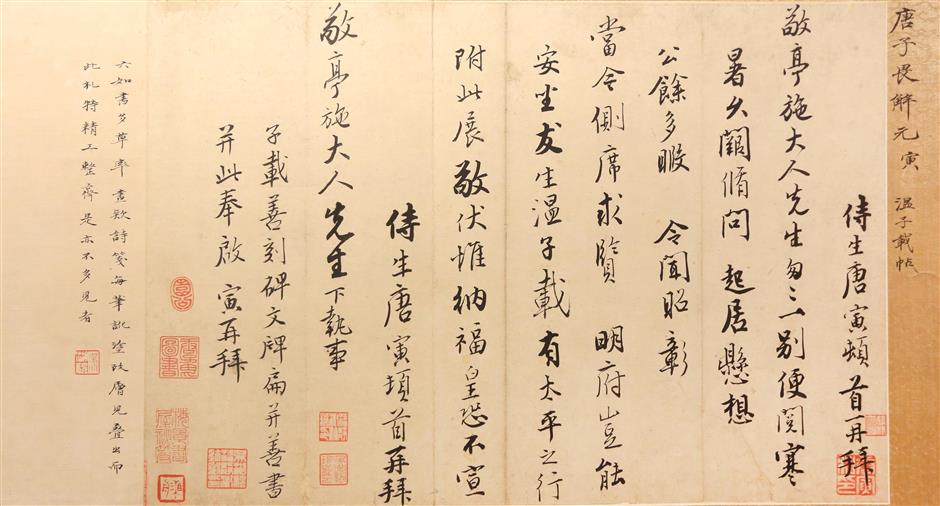 唐子畏解元寅 溫子載帖
侍生唐寅頓首再拜
敬亭施大人先生匆匆一別便閱寒
暑久闊脩問 起居懸想
公餘多暇 令聞昭彰
當今側席求賢 明府豈能
安坐友生溫子載有太平之行
附此展敬伏惟納福皇恐不宣
侍生唐寅頓首再拜
敬亭施大人先生下執事
子載善刻碑文牌扁并善書
并此奉啟 寅再拜
六如書多草率畫款詩箋每筆訛塗改層見疊出而
此札特精工整齊是亦不多見者